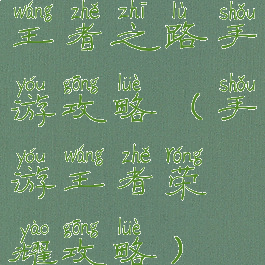 wáng zhě zhī lù shǒu
王者之路手
yóu gōng lüè shǒu
游攻略(手
yóu wáng zhě róng
游王者荣
yào gōng lüè
耀攻略)